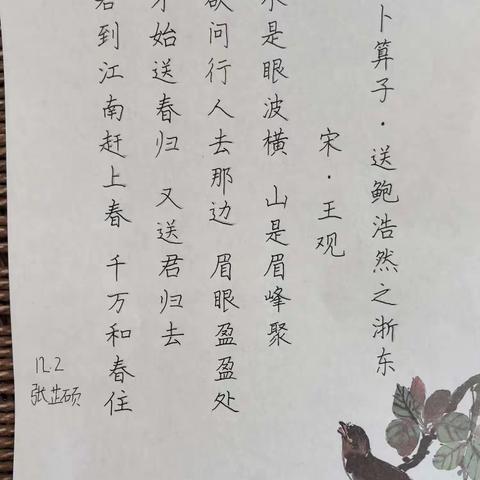 卜算子·送鲍浩然之浙东
宋·王观
水是眼波横 山是眉峰聚
欲问行人去那边 眉眼盈盈处
才始送春归 又送君归去
若到江南赶上春 千万和春住
12.2
张芷硕